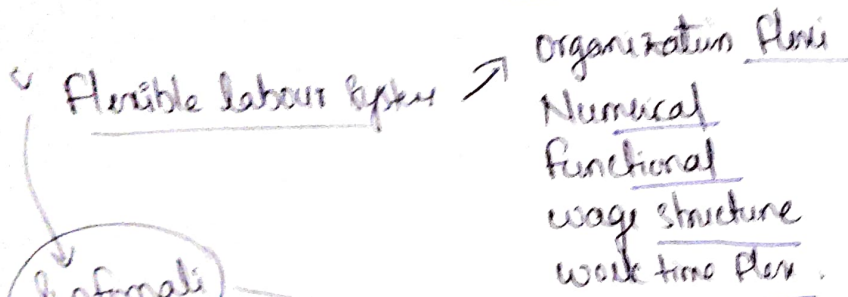 Flexible labour system → Organization flexi
Numerical
functional
wage structure
work time flex.
Informali